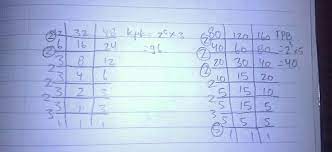 32 48 Kpk = 2⁵ x 3
2 6 16 24 = 96
2 3 8 12
2 3 4 6
2 3 2 3
2 3
3 1 1 1
80 120 160 FPB
2 40 60 80 = 2³x5
2 20 30 40 = 40
2 10 15 20
2 5 15 10
5 15 5
5 5 5
5 1 1 1